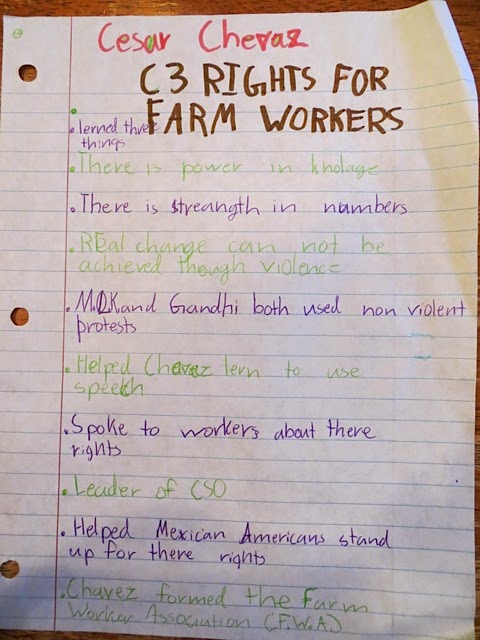 Cesar Chevaz
C3 RIGHTS FOR
FARM WORKERS
• lerned three
things
• There is power in knolage
• There is streangth in numbers
• REal change can not be
achieved though violence
• MLK and Gandhi both used non violent
protests
• Helped Chavez lern to use
speech
• Spoke to workers about there
rights
• Leader of CSO
• Helped Mexican Americans stand
up for there rights
• Chavez formed the Farm
Worker Association (F.W.A)